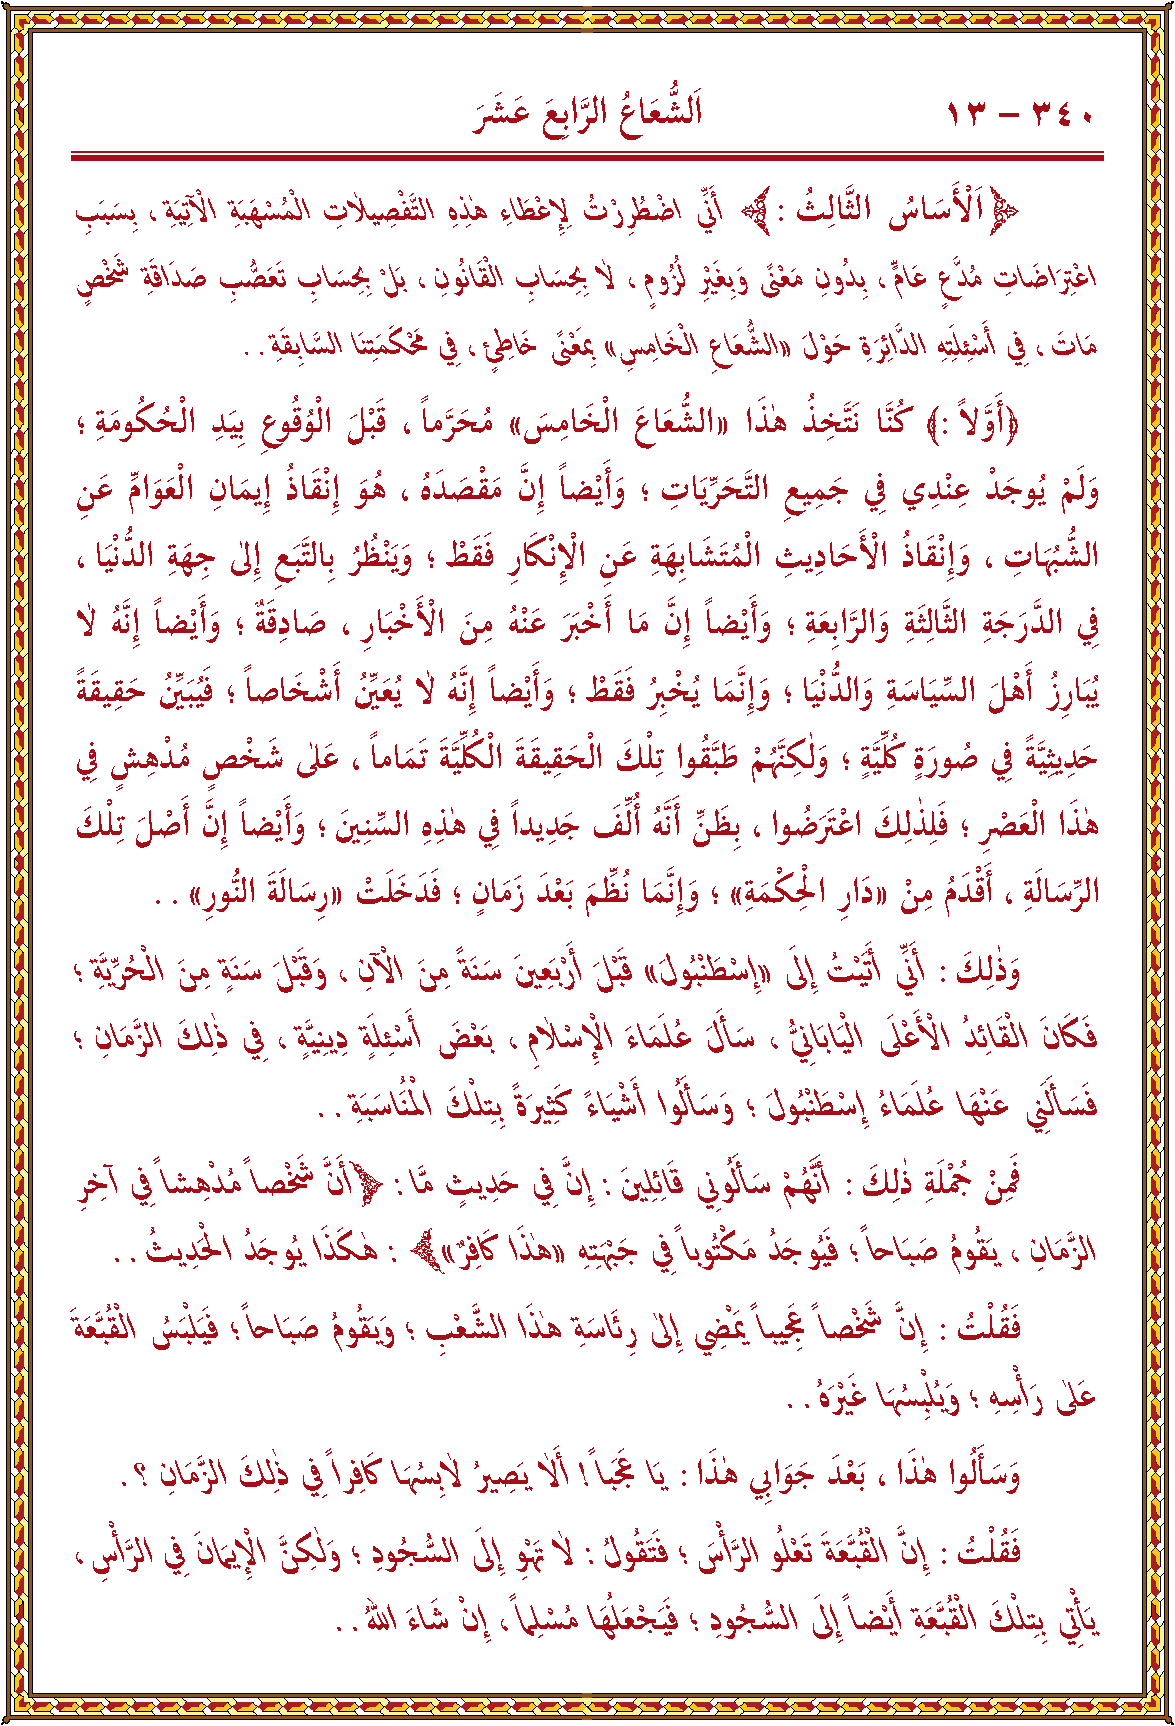 ٣٤٠ – ١٣ اَلشُّعَاعُ الرَّابِعَ عَشَرَ
﴿اَلْأَسَاسُ الثَّالِثُ : ﴾ أَنِّي اضْطُرِرْتُ لِإِعْطَاءِ هٰذِهِ التَّفْصِيلَاتِ الْمُسْهَبَةِ الْآتِيَةِ ، بِسَبَبِ
اعْتِرَاضَاتِ مُدَّعٍ عَامٍّ ، بِدُونِ مَعْنًى وَبِغَيْرِ لُزُومٍ ، لَا بِحِسَابِ الْقَانُونِ ، بَلْ بِحِسَابِ تَعَصُّبِ صَدَاقَةِ شَخْصٍ
مَاتَ ، فِي أَسْئِلَتِهِ الدَّائِرَةِ حَوْلَ «الشُّعَاعِ الْخَامِسِ» بِمَعْنًى خَاطِئٍ ، فِي مَحْكَمَتِنَا السَّابِقَةِ . .
﴿أَوَّلاً :﴾ كُنَّا نَتَّخِذُ هٰذَا «الشُّعَاعَ الْخَامِسَ» مُحَرَّماً ، قَبْلَ الْوُقُوعِ بِيَدِ الْحُكُومَةِ ؛
وَلَمْ يُوجَدْ عِنْدِي فِي جَمِيعِ التَّحَرِّيَاتِ ؛ وَأَيْضاً إِنَّ مَقْصَدَهُ ، هُوَ إِنْقَاذُ إِيمَانِ الْعَوَامِّ عَنِ
الشُّبُهَاتِ ، وَإِنْقَاذُ الْأَحَادِيثِ الْمُتَشَابِهَةِ عَنِ الْإِنْكَارِ فَقَطْ ؛ وَيَنْظُرُ بِالتَّبَعِ إِلٰى جِهَةِ الدُّنْيَا ،
فِي الدَّرَجَةِ الثَّالِثَةِ وَالرَّابِعَةِ ؛ وَأَيْضاً إِنَّ مَا أَخْبَرَ عَنْهُ مِنَ الْأَخْبَارِ ، صَادِقَةٌ ؛ وَأَيْضاً إِنَّهُ لَا
يُبَارِزُ أَهْلَ السِّيَاسَةِ وَالدُّنْيَا ؛ وَإِنَّمَا يُخْبِرُ فَقَطْ ؛ وَأَيْضاً إِنَّهُ لَا يُعَيِّنُ أَشْخَاصاً ؛ فَيُبَيِّنُ حَقِيقَةً
حَدِيثِيَّةً فِي صُورَةٍ كُلِّيَّةٍ ؛ وَلٰكِنَّهُمْ طَبَّقُوا تِلْكَ الْحَقِيقَةَ الْكُلِّيَّةَ تَمَاماً ، عَلٰى شَخْصٍ مُدْهِشٍ فِي
هٰذَا الْعَصْرِ ؛ فَلِذٰلِكَ اعْتَرَضُوا ، بِظَنِّ أَنَّهُ أُلِّفَ جَدِيداً فِي هٰذِهِ السِّنِينَ ؛ وَأَيْضاً إِنَّ أَصْلَ تِلْكَ
الرِّسَالَةِ ، أَقْدَمُ مِنْ «دَارِ الْحِكْمَةِ» ؛ وَإِنَّمَا نُظِّمَ بَعْدَ زَمَانٍ ؛ فَدَخَلَتْ «رِسَالَةَ النُّورِ» . .
وَذٰلِكَ : أَنِّي أَتَيْتُ إِلَى «إِسْطَنْبُولَ» قَبْلَ أَرْبَعِينَ سَنَةً مِنَ الْآنِ ، وَقَبْلَ سَنَةٍ مِنَ الْحُرِّيَّةِ ؛
فَكَانَ الْقَائِدُ الْأَعْلَى الْيَابَانِيُّ ، سَأَلَ عُلَمَاءَ الْإِسْلَامِ ، بَعْضَ أَسْئِلَةٍ دِينِيَّةٍ ، فِي ذٰلِكَ الزَّمَانِ ؛
فَسَأَلَنِي عَنْهَا عُلَمَاءُ إِسْطَنْبُولَ ؛ وَسَأَلُوا أَشْيَاءً كَثِيرَةً بِتِلْكَ الْمُنَاسَبَةِ . .
فَمِنْ جُمْلَةِ ذٰلِكَ : أَنَّهُمْ سَأَلُونِي قَائِلِينَ : إِنَّ فِي حَدِيثٍ مَّا : ﴿أَنَّ شَخْصاً مُدْهِشاً فِي آخِرِ
الزَّمَانِ ، يَقُومُ صَبَاحاً ؛ فَيُوجَدُ مَكْتُوباً فِي جَبْهَتِهِ «هٰذَا كَافِرٌ»﴾ : هٰكَذَا يُوجَدُ الْحَدِيثُ . .
فَقُلْتُ : إِنَّ شَخْصاً عَجِيباً يَمْضِي إِلٰى رِئَاسَةِ هٰذَا الشَّعْبِ ؛ وَيَقُومُ صَبَاحاً ؛ فَيَلْبَسُ الْقُبَّعَةَ
عَلٰى رَأْسِهِ ؛ وَيُلْبِسُهَا غَيْرَهُ . .
وَسَأَلُوا هٰذَا ، بَعْدَ جَوَابِي هٰذَا : يَا عَجَباً ! أَلَا يَصِيرُ لَابِسُهَا كَافِراً فِي ذٰلِكَ الزَّمَانِ ؟ .
فَقُلْتُ : إِنَّ الْقُبَّعَةَ تَعْلُو الرَّأْسَ ؛ فَتَقُولُ : لَا تَهْوِ إِلَى السُّجُودِ ؛ وَلٰكِنَّ الْإِيمَانَ فِي الرَّأْسِ ،
يَأْتِي بِتِلْكَ الْقُبَّعَةِ أَيْضاً إِلَى السُّجُودِ ؛ فَيَجْعَلُهَا مُسْلِماً ، إِنْ شَاءَ اللهُ . .